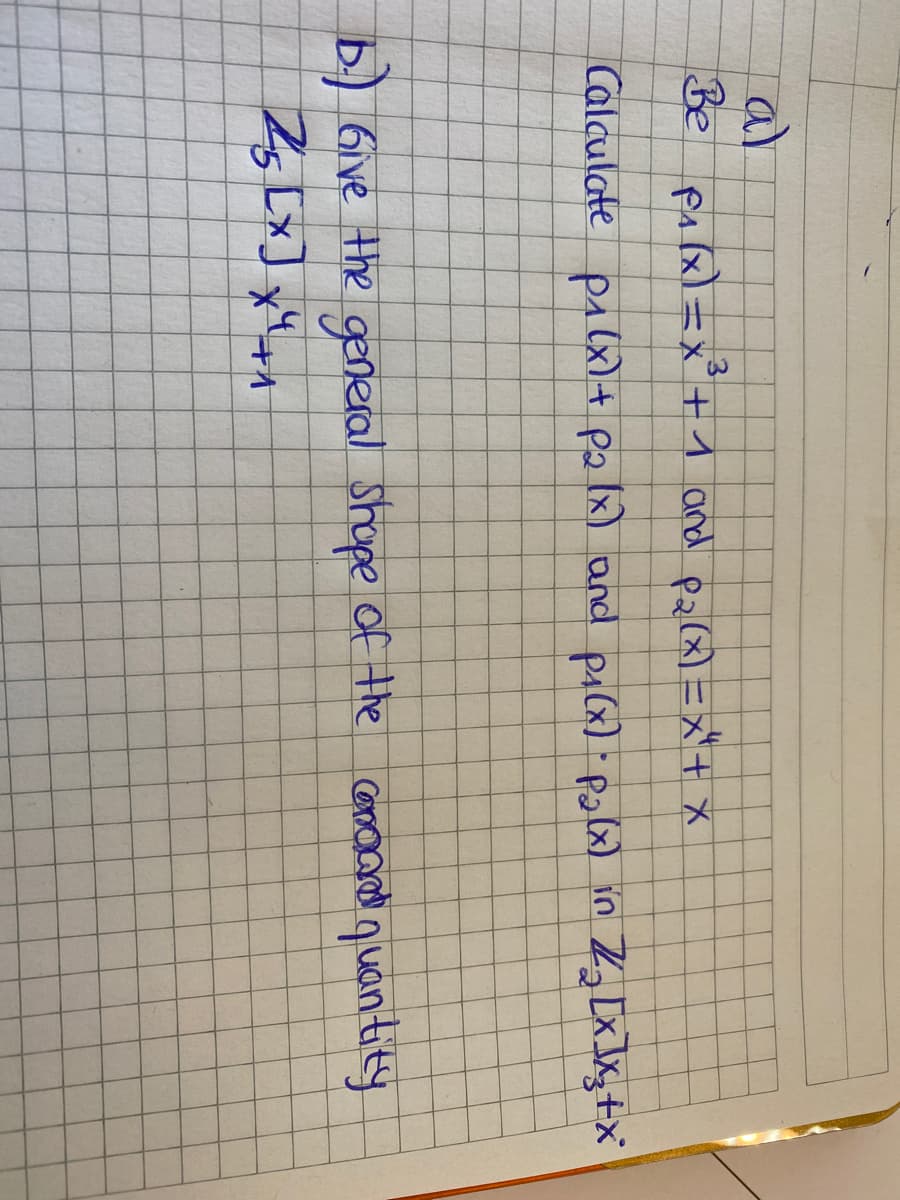 a)
Be p₁(x)=x³+1 and p₂(x)=x⁴+x
Calculate p₁(x)+p₂(x) and p₁(x)·p₂(x) in ℤ₂[x]x₃+x
b.) Give the general shape of the quantity
ℤ₅[x] x⁴+1